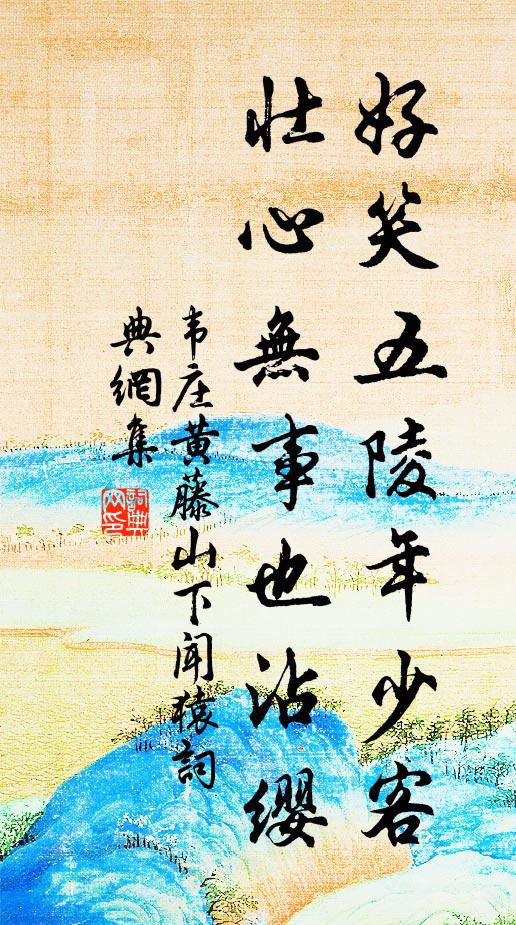 好笑五陵年少客
壮心無事也沾缨
韦庄黄藤山下闻猿詞
典網集
詞典
网印